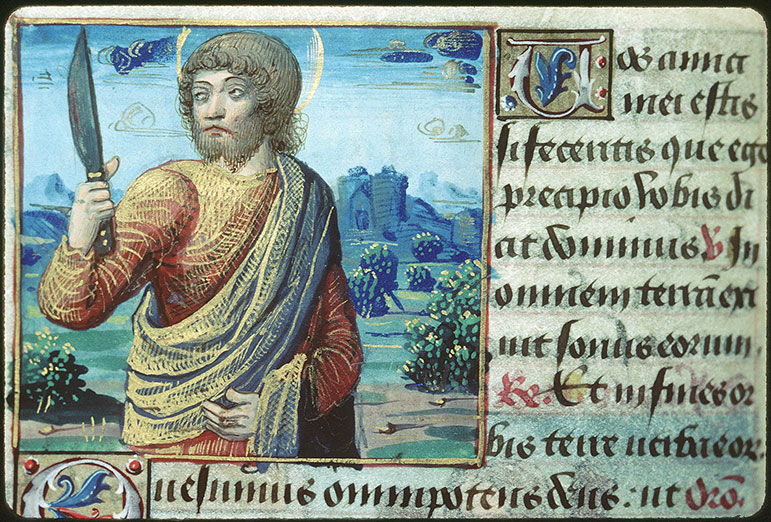 Vos amici
mei estis
si feceritis que ego
precipio vobis di
cit dominus. V In
omnem terrā exi
uit sonus eorum.
R. Et in fines or
bis terre uerba eor.
Quesumus omnipotens deus: ut Oro.